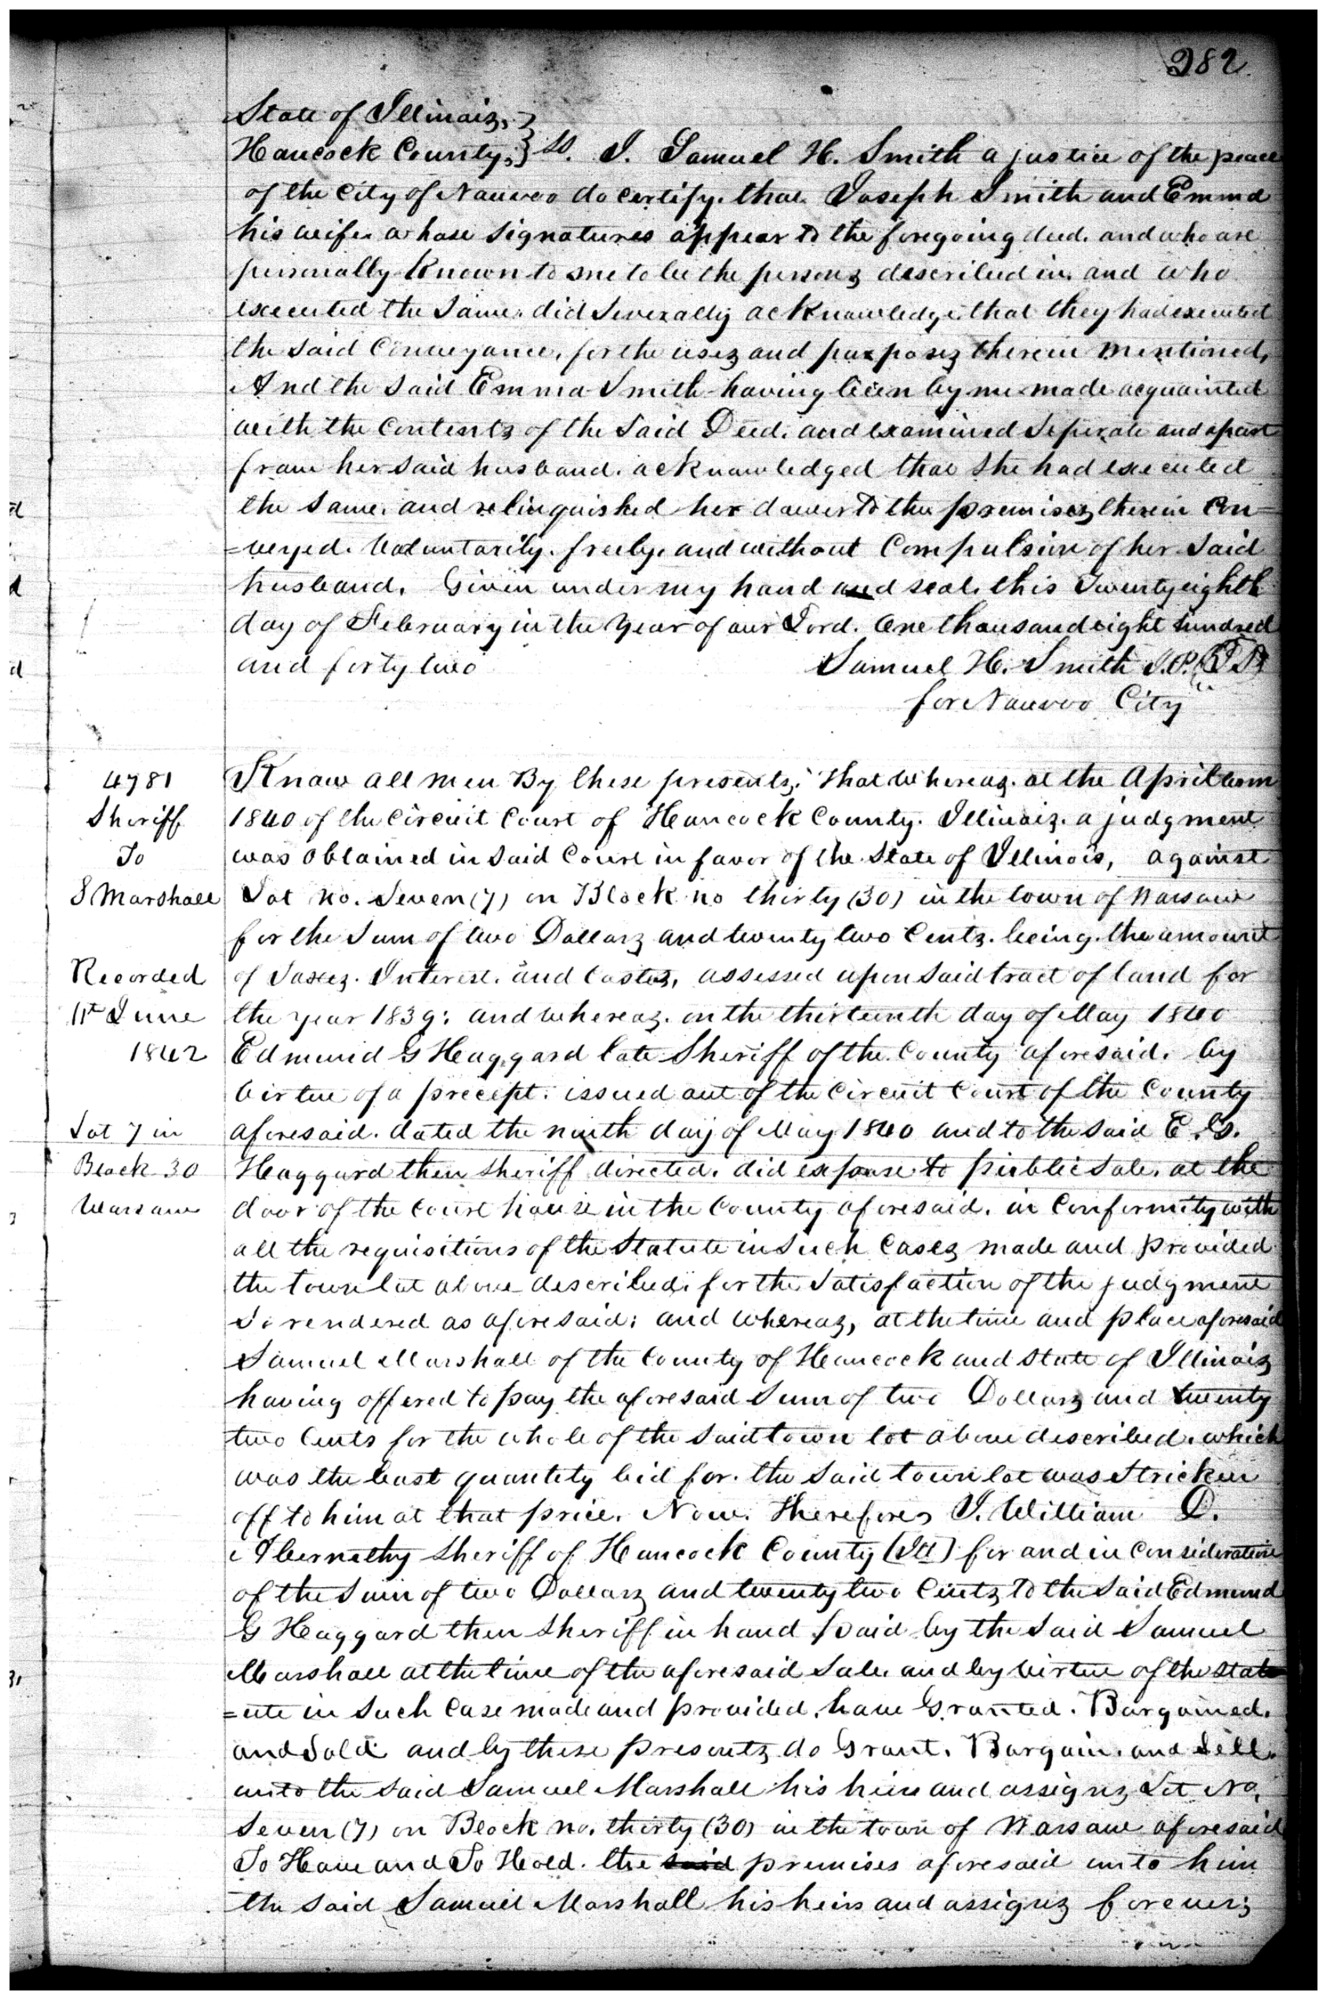 282
State of Illinois,
Hancock County, } ss. I. Samuel H. Smith a justice of the peace
of the City of Nauvoo do certify. that Joseph Smith and Emma
his wife. whose signatures appear to the foregoing deed. and who are
personally known to me to be the persons described in. and who
executed the same. did severally acknowledge. that they had executed
the said Conveyance, for the uses and purposes therein mentioned,
And the said Emma Smith having been by me made acquainted
with the contents of the said Deed. and examined seperate and apart
from her said husband. acknowledged that she had executed
the same. and relinquished her dower to the premises therein Con=
=veyed. Voluntarily. freely. and without Compulsion of her said
husband. Given under my hand and seal. this Twenty eighth
day of February in the year of our Lord. One thousand eight hundred
and forty two Samuel H. Smith J.P.
for Nauvoo City
4781
Sheriff
To
S Marshall
Recorded
11th June
1842
Lot 7 in
Block 30
Warsaw
Know all men By these presents; that whereas. at the April term
1840 of the Circuit Court of Hancock County. Illinois. a judgment
was obtained in said Court in favor of the State of Illinois, against
Lot no. Seven (7) on Block no thirty (30) in the town of Warsaw
for the sum of two Dollars and twenty two Cents. being. the amount
of Taxes. Interest. and Costs, assessed upon said tract of land for
the year 1839: and whereas. on the thirteenth day of May 1840
Edmund G Haggard late Sheriff of the County aforesaid. by
virtue of a precept. issued out of the Circuit Court of the County
aforesaid. dated the ninth day of May 1840 and to the said E. G.
Haggard then sheriff directed. did expose to public sale. at the
door of the Court house in the County aforesaid. in Conformity with
all the requisitions of the Statute in such Cases made and provided
the town lot above described. for the satisfaction of the judgment
so rendered as aforesaid; and whereas, at the time and place aforesaid
Samuel Marshall of the County of Hancock and State of Illinois
having offered to pay the aforesaid sum of two Dollars and twenty
two Cents for the whole of the said town lot above described. which
was the least quantity bid for. the said town lot was Stricken
off to him at that price. Now. Therefore, I. William D.
Abernethy sheriff of Hancock County (Ill) for and in Consideration
of the sum of two Dollars and twenty two Cents to the said Edmund
G Haggard then sheriff in hand paid by the said Samuel
Marshall at the time of the aforesaid sale. and by virtue of the stat
=ute in such Case made and provided, have Granted. Bargained.
and Sold and by these presents do Grant. Bargain. and Sell.
unto the said Samuel Marshall his heirs and assigns Lot No.
Seven (7) on Block no. thirty (30) in the town of Warsaw aforesaid
To Have and To Hold. the said premises aforesaid unto him
the said Samuel Marshall his heirs and assigns forever;